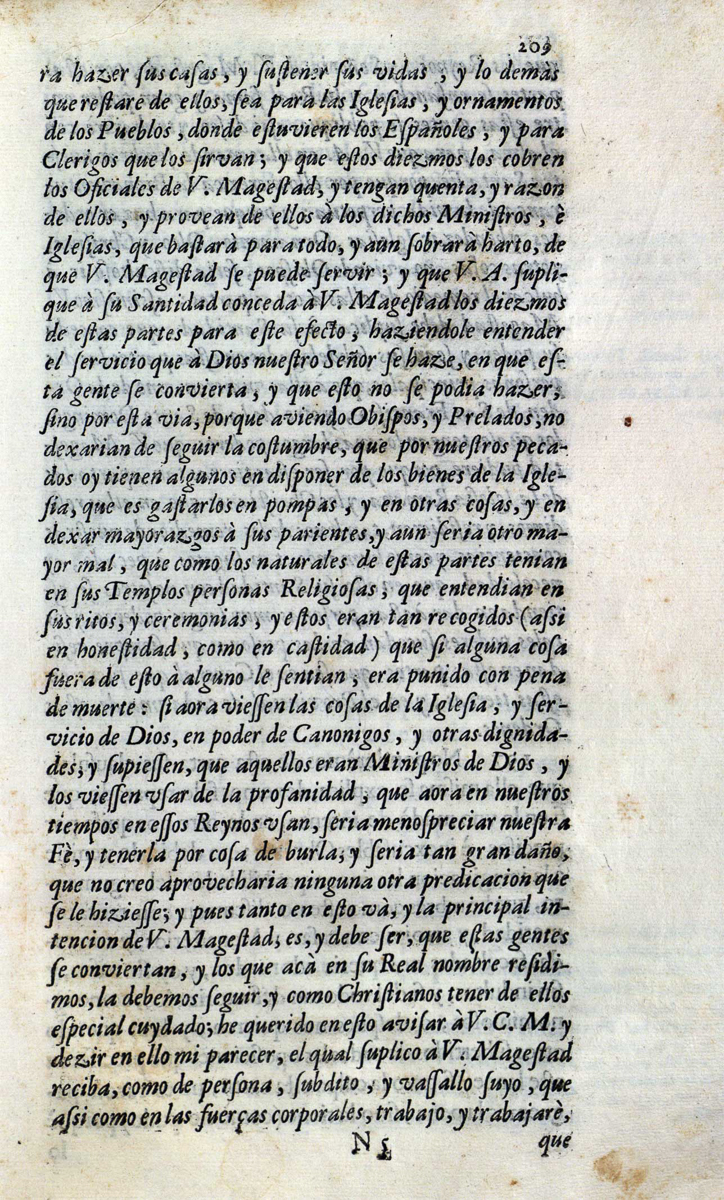 209
ra hazer ſus caſas, y ſuſtener ſus vidas ; y lo demàs
que reſtare de ellos, ſea para las Igleſias, y ornamentos
de los Pueblos, donde eſtuvieren los Eſpañoles, y para
Clerigos que los ſirvan; y que eſtos diezmos los cobren
los Oficiales de V. Mageſtad, y tengan quenta, y razon
de ellos, y provean de ellos à los dichos Miniſtros, è
Igleſias, que baſtarà para todo, y aun ſobrarà harto, de
que V. Mageſtad ſe puede ſervir; y que V. A. ſupli-
que à ſu Santidad conceda à V. Mageſtad los diezmos
de eſtas partes para eſte efecto, haziendole entender
el ſervicio que à Dios nueſtro Señor ſe haze, en que eſ-
ta gente ſe convierta, y que eſto no ſe podia hazer,
ſino por eſta via, porque aviendo Obiſpos, y Prelados, no
dexarian de ſeguir la coſtumbre, que por nueſtros peca-
dos oy tienen algunos en diſponer de los bienes de la Igle-
ſia, que es gaſtarlos en pompas, y en otras coſas, y en
dexar mayorazgos à ſus parientes, y aun ſeria otro ma-
yor mal, que como los naturales de eſtas partes tenian
en ſus Templos perſonas Religioſas, que entendian en
ſus ritos, y ceremonias, y eſtos eran tan recogidos (aſsi
en honeſtidad, como en caſtidad) que ſi alguna coſa
fuera de eſto à alguno le ſentian, era punido con pena
de muerte: ſi aora vieſſen las coſas de la Igleſia, y ſer-
vicio de Dios, en poder de Canonigos, y otras dignida-
des, y ſupieſſen, que aquellos eran Miniſtros de Dios, y
los vieſſen vſar de la profanidad, que aora en nueſtros
tiempos en eſſos Reynos vſan, ſeria menoſpreciar nueſtra
Fè, y tenerla por coſa de burla; y ſeria tan gran daño,
que no creo aprovecharia ninguna otra predicacion que
ſe le hizieſſe; y pues tanto en eſto và, y la principal in-
tencion de V. Mageſtad, es, y debe ſer, que eſtas gentes
ſe conviertan, y los que acà en ſu Real nombre reſidi-
mos, la debemos ſeguir, y como Chriſtianos tener de ellos
eſpecial cuydado; he querido en eſto aviſar à V. C. M. y
dezir en ello mi parecer, el qual ſuplico à V. Mageſtad
reciba, como de perſona, ſubdito, y vaſſallo ſuyo, que
aſsi como en las fuerças corporales, trabajo, y trabajarè,
N 5 que